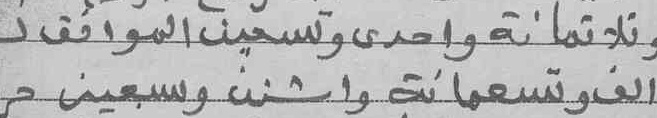 وثلاثمائة واحدى وتسعين الموافق ل
الف وتسعمائة واثنين وسبعين م